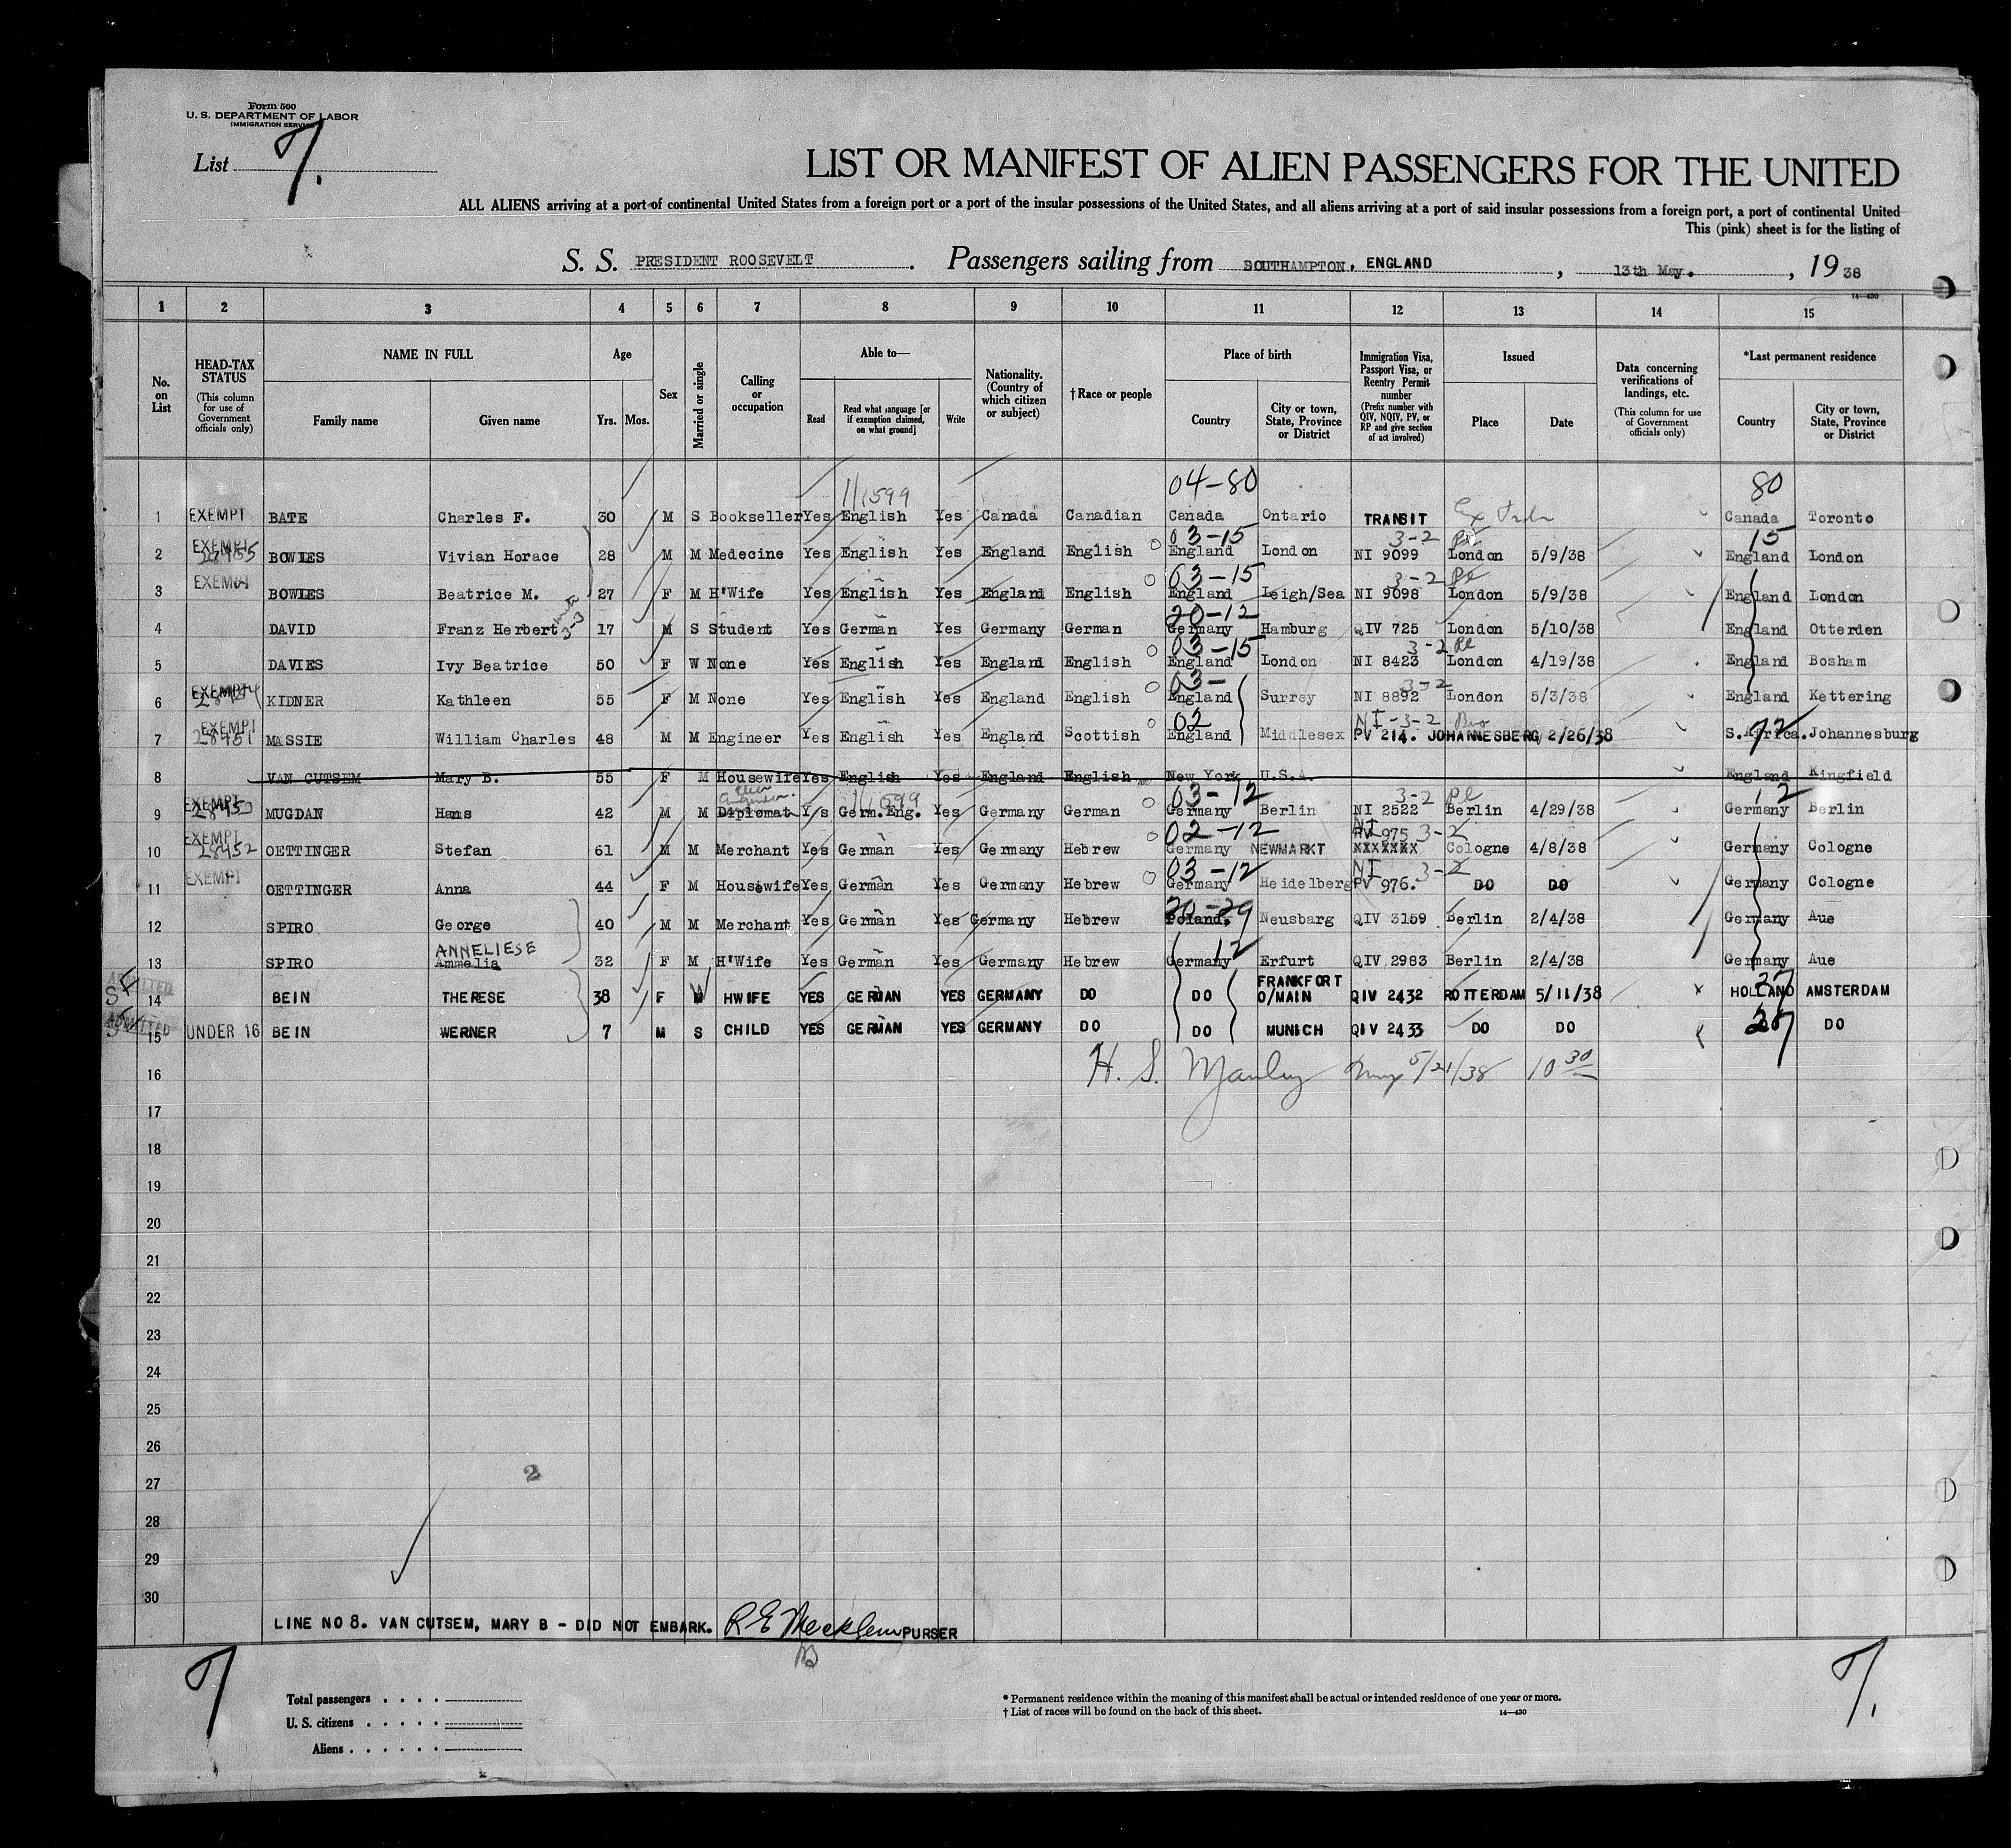 Form 500
U. S. DEPARTMENT OF LABOR
IMMIGRATION SERVICE
List 7.
LIST OR MANIFEST OF ALIEN PASSENGERS FOR THE UNITED
ALL ALIENS arriving at a port of continental United States from a foreign port or a port of the insular possessions of the United States, and all aliens arriving at a port of said insular possessions from a foreign port, a port of continental United
This (pink) sheet is for the listing of
S. S. PRESIDENT ROOSEVELT. Passengers sailing from SOUTHAMPTON, ENGLAND, 13th May., 19 38
14—430
1 2 3 4 5 6 7 8 9 10 11 12 13 14 15
No. on List
HEAD-TAX STATUS (This column for use of Government officials only)
NAME IN FULL
Family name Given name
Age
Yrs. Mos.
Sex
Married or single
Calling or occupation
Able to—
Read Read what language [or if exemption claimed, on what ground] Write
Nationality. (Country of which citizen or subject)
†Race or people
Place of birth
Country City or town, State, Province or District
Immigration Visa, Passport Visa, or Reentry Permit number (Prefix number with QIV, NQIV, PV, or RP and give section of act involved)
Issued
Place Date
Data concerning verifications of landings, etc. (This column for use of Government officials only)
*Last permanent residence
Country City or town, State, Province or District
11599 04-80 80
1 EXEMPT BATE Charles F. 30 M S Bookseller Yes English Yes Canada Canadian Canada Ontario TRANSIT Canada Toronto
03-15 3-2 15
2 EXEMPT 28455 BOWLES Vivian Horace 28 M M Medecine Yes English Yes England English England London NI 9099 London 5/9/38 England London
03-15 3-2
3 EXEMPT BOWLES Beatrice M. 27 F M H'Wife Yes English Yes England English England Leigh/Sea NI 9098 London 5/9/38 England London
3-3 20-12
4 DAVID Franz Herbert 17 M S Student Yes German Yes Germany German Germany Hamburg QIV 725 London 5/10/38 England Otterden
03-15 3-2
5 DAVIES Ivy Beatrice 50 F W None Yes English Yes England English England London NI 8423 London 4/19/38 England Bosham
03- 3-2
6 EXEMPT 28454 KIDNER Kathleen 55 F M None Yes English Yes England English England Surrey NI 8892 London 5/3/38 England Kettering
02 NI-3-2 72
7 EXEMPT 28451 MASSIE William Charles 48 M M Engineer Yes English Yes England Scottish England Middlesex PV 214. JOHANNESBERG 2/26/38 S.Africa. Johannesburg
8 VAN CUTSEM Mary B. 55 F M Housewife Yes English Yes England English New York U.S.A. England Kingfield
11599 03-12 3-2 12
9 EXEMPT MUGDAN Hans 42 M M Diplomat Yes Germ.Eng. Yes Germany German Germany Berlin NI 2522 Berlin 4/29/38 Germany Berlin
02-12 NI PV 975 3-2
10 EXEMPT 28452 OETTINGER Stefan 61 M M Merchant Yes German Yes Germany Hebrew Germany NEWMARKT XXXXXXX Cologne 4/8/38 Germany Cologne
03-12 NI 3-2
11 EXEMPT OETTINGER Anna 44 F M Housewife Yes German Yes Germany Hebrew Germany Heidelberg PV 976. DO DO Germany Cologne
20-29
12 SPIRO George 40 M M Merchant Yes German Yes Germany Hebrew Poland. Neusbarg QIV 3159 Berlin 2/4/38 Germany Aue
ANNELIESE 12
13 SPIRO Ammelia 32 F M H'Wife Yes German Yes Germany Hebrew Germany Erfurt QIV 2983 Berlin 2/4/38 Germany Aue
14 ADMITTED BEIN THERESE 38 F W HWIFE YES GERMAN YES GERMANY DO DO FRANKFORT O/MAIN QIV 2432 ROTTERDAM 5/11/38 HOLLAND AMSTERDAM
15 ADMITTED UNDER 16 BEIN WERNER 7 M S CHILD YES GERMAN YES GERMANY DO DO MUNICH QIV 2433 DO DO DO
16 H. S. Manley 5/21/38 10 30
17
18
19
20
21
22
23
24
25
26
27
2
28
29
30
LINE NO 8. VAN CUTSEM, MARY B - DID NOT EMBARK. R E Mecklem PURSER
7 7.
Total passengers
U. S. citizens
Aliens
* Permanent residence within the meaning of this manifest shall be actual or intended residence of one year or more.
† List of races will be found on the back of this sheet.
14—430